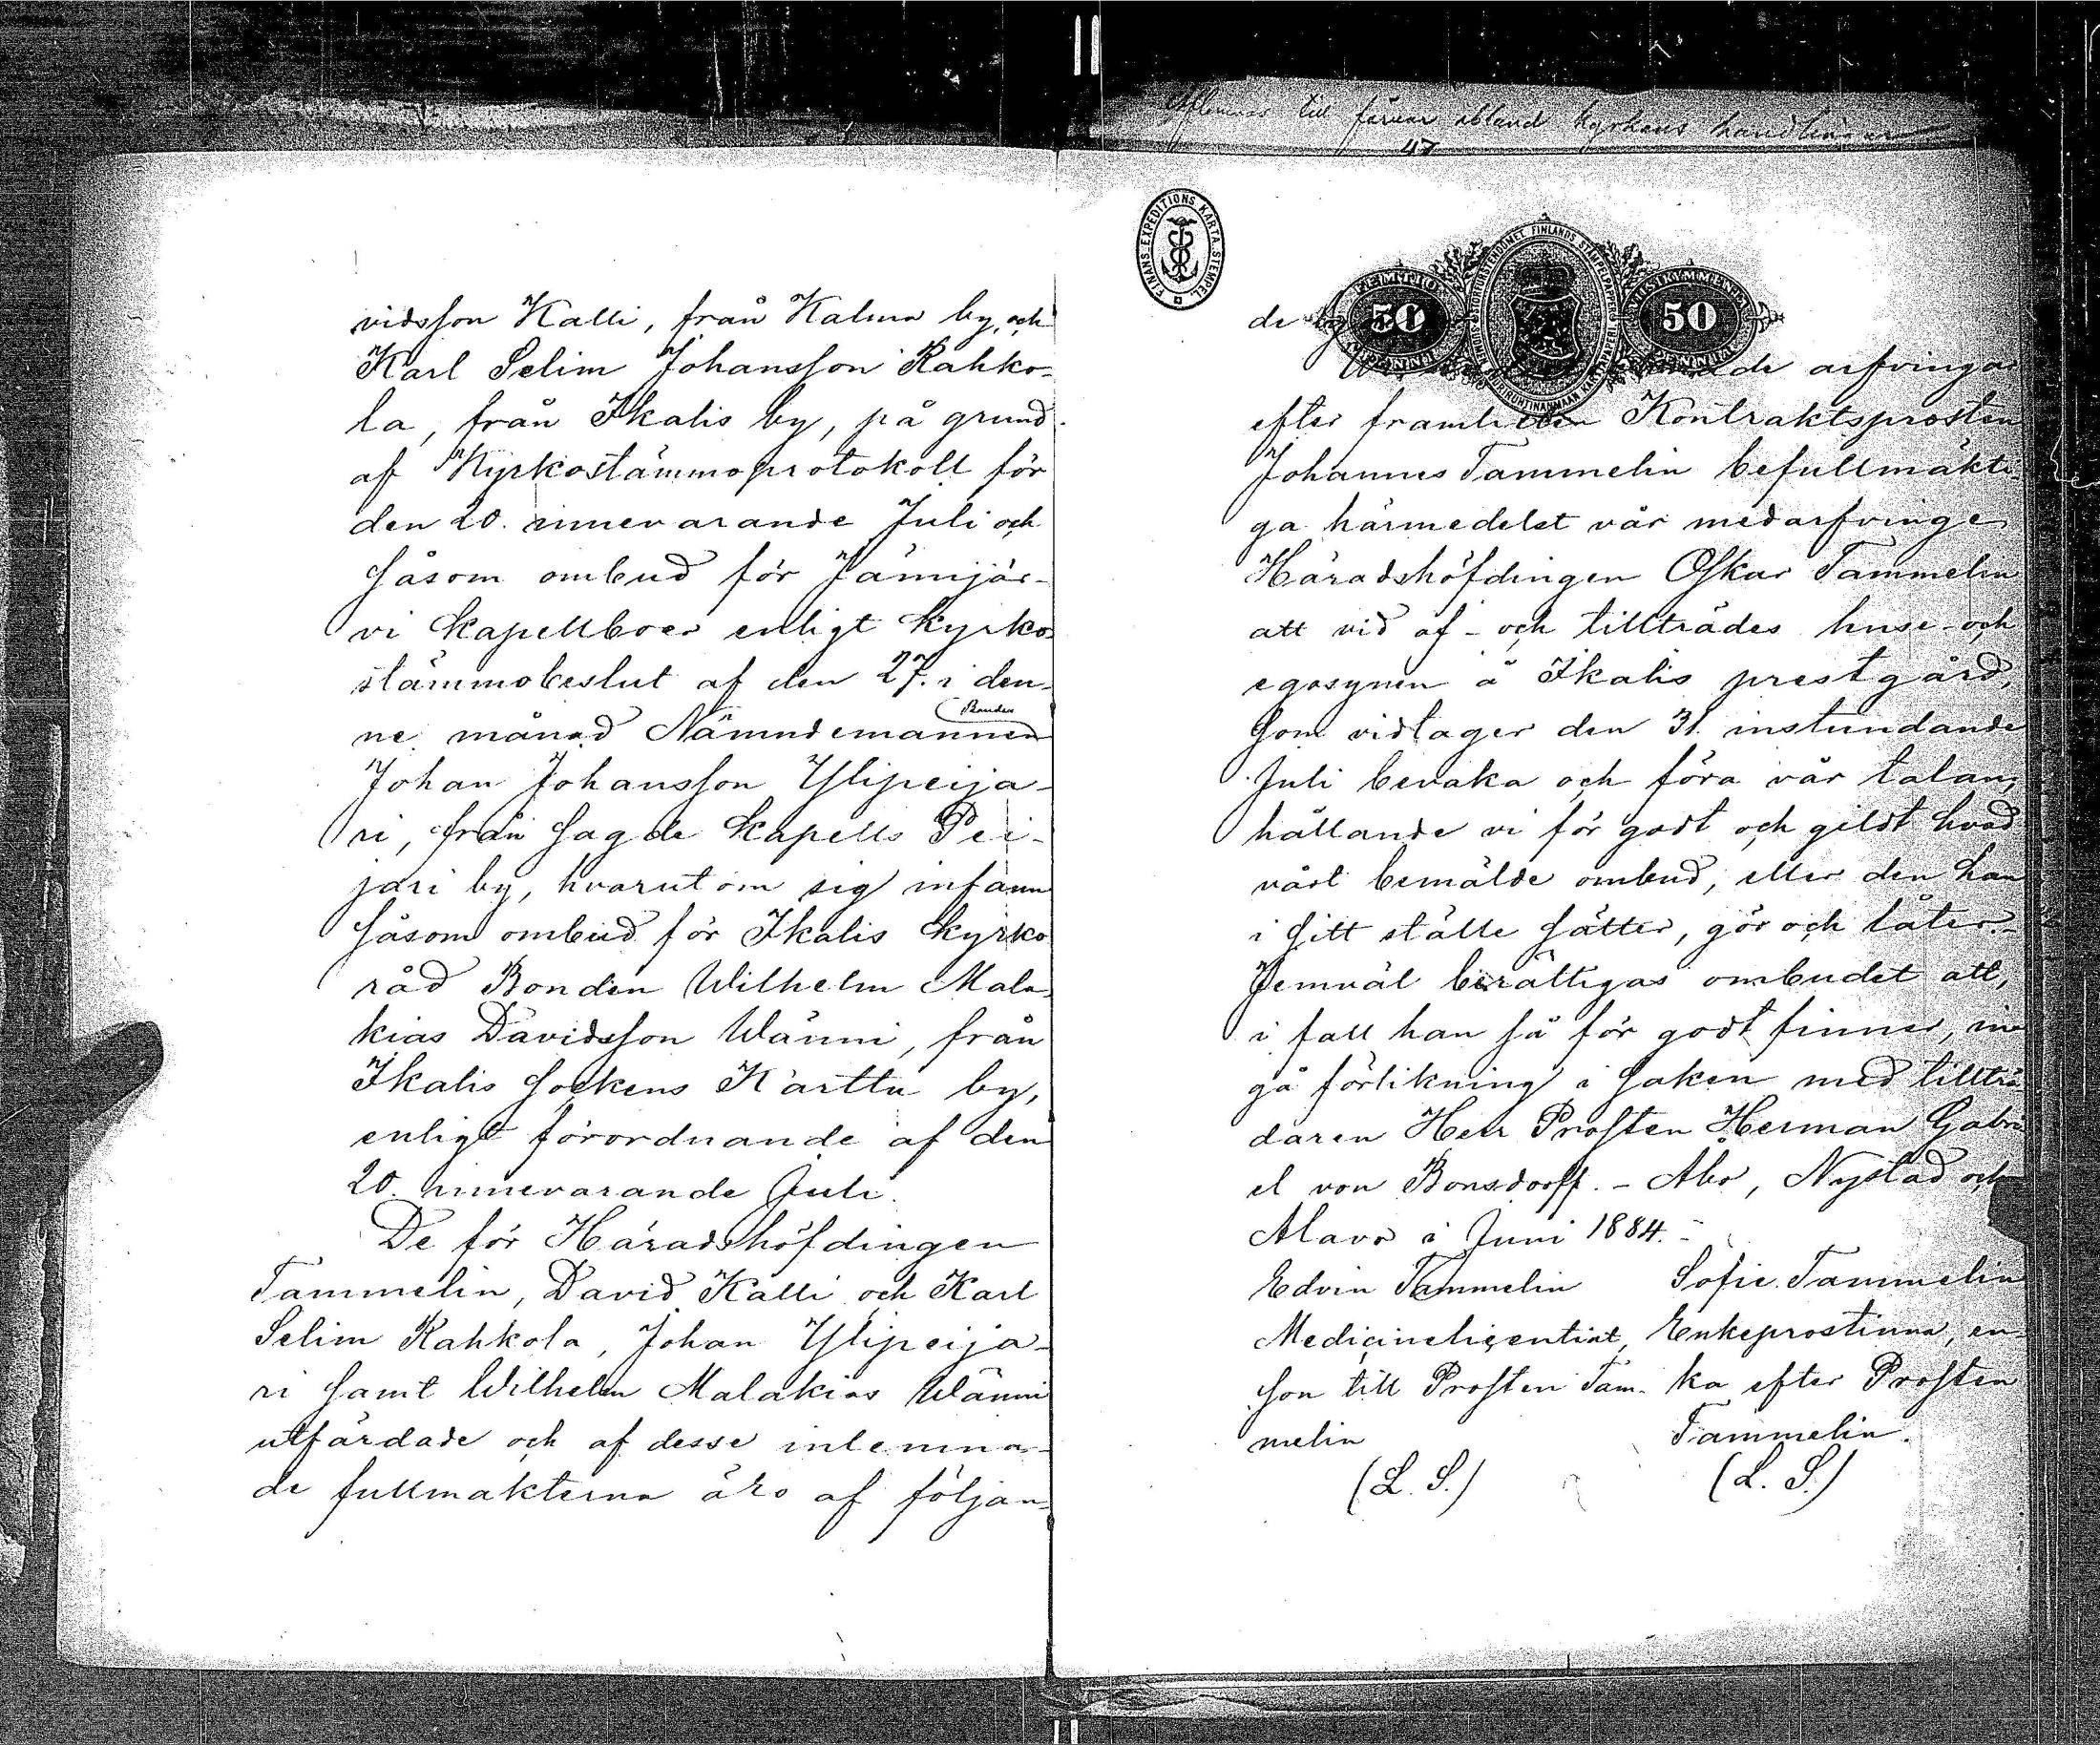 vidsson Kalli, från Kalma by, och
Karl Selim Johansson Rahko-
la, från Ikalis by, på grund
af Kyrkostämmoprotokoll för
den 20. innevarande Juli och
såsom ombud för Jämijär-
vi kapellboer enligt kyrko-
stämmobeslut af den 27. i den-
Bonden
ne månad Nämndemannen
Johan Johansson Ylipeija-
ri, från sagde kapells Pei-
jari by, hvarutom sig infann
såsom ombud för Ikalis kyrko
råd Bonden Wilhelm Mala-
kias Davidsson Wänni, från
Ikalis sockens Kärttu by,
enligt förordnande af den
20. innevarande Juli.
De för Häradshöfdingen
Tammelin, David Kalli och Karl
Selim Rahkola, Johan Ylipeija-
ri samt Wilhelm Malakias Wänni
utfärdade och af desse inlemna-
de fullmakterna äro af följan-
till förvar ibland kyrkans handlingar
47
FINANS EXPEDITIONS KARTA STEMPEL
FEMTIO
50
50
de
de arfvingar
efter framlidne Kontraktsprosten
Johannes Tammelin befullmäkti-
ga härmedelst vår medarfvinge
Häradshöfdingen Oskar Tammelin
att vid af- och tillträdes huse- och
egosynen å Ikalis prestgård,
som vidtager den 31. instundande
Juli bevaka och föra vår talan,
hållande vi för godt och gildt hvad
vårt bemälde ombud, eller den han
i sitt ställe sätter, gör och låter.-
Jemväl berättigas ombudet att,
i fall han så för godt finner, in-
gå förlikning i saken med tillträ-
daren Herr Prosten Herman Gabri-
el von Bonsdorff. - Abo, Nystad och
Alavo i Juni 1884. -
Edvin Tammelin Sofie Tammelin
Medicinelicentiat, Enkeprostinna, en-
son till Prosten Tam- ka efter Prosten
melin Tammelin.
(L. S.) (L. S.)